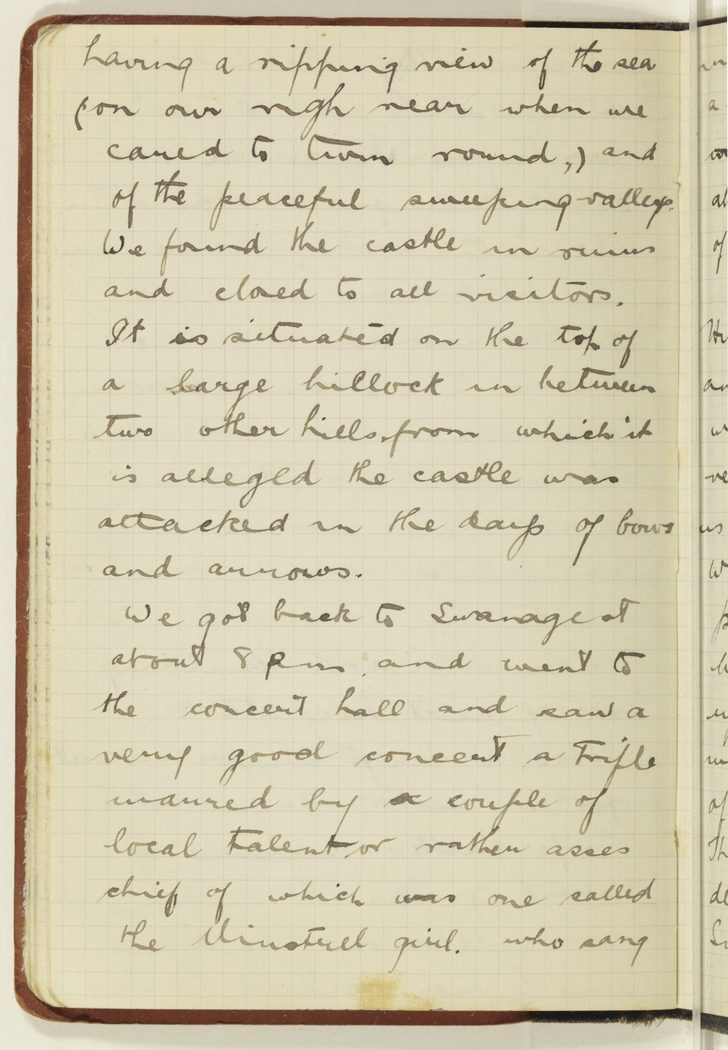 having a ripping view of the sea
(on our righ rear when we
cared to turn round,) and
of the peaceful sweeping valleys.
We found the castle in ruins
and closed to all visitors.
It is situated on the top of
a large hillock in between
two other hills, from which it
is alleged the castle was
attacked in the days of bows
and arrows.
We got back to Swanage at
about 8 pm. and went to
the concert hall and saw a
very good concert a trifle
marred by a couple of
local talent or rather asses
chief of which was one called
the Minstrell girl. who sang